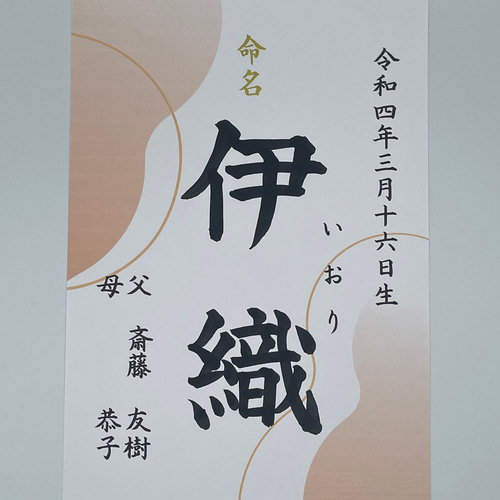 令和四年三月十六日生
いおり
命名
伊織
父 斎藤 友樹
母 恭子